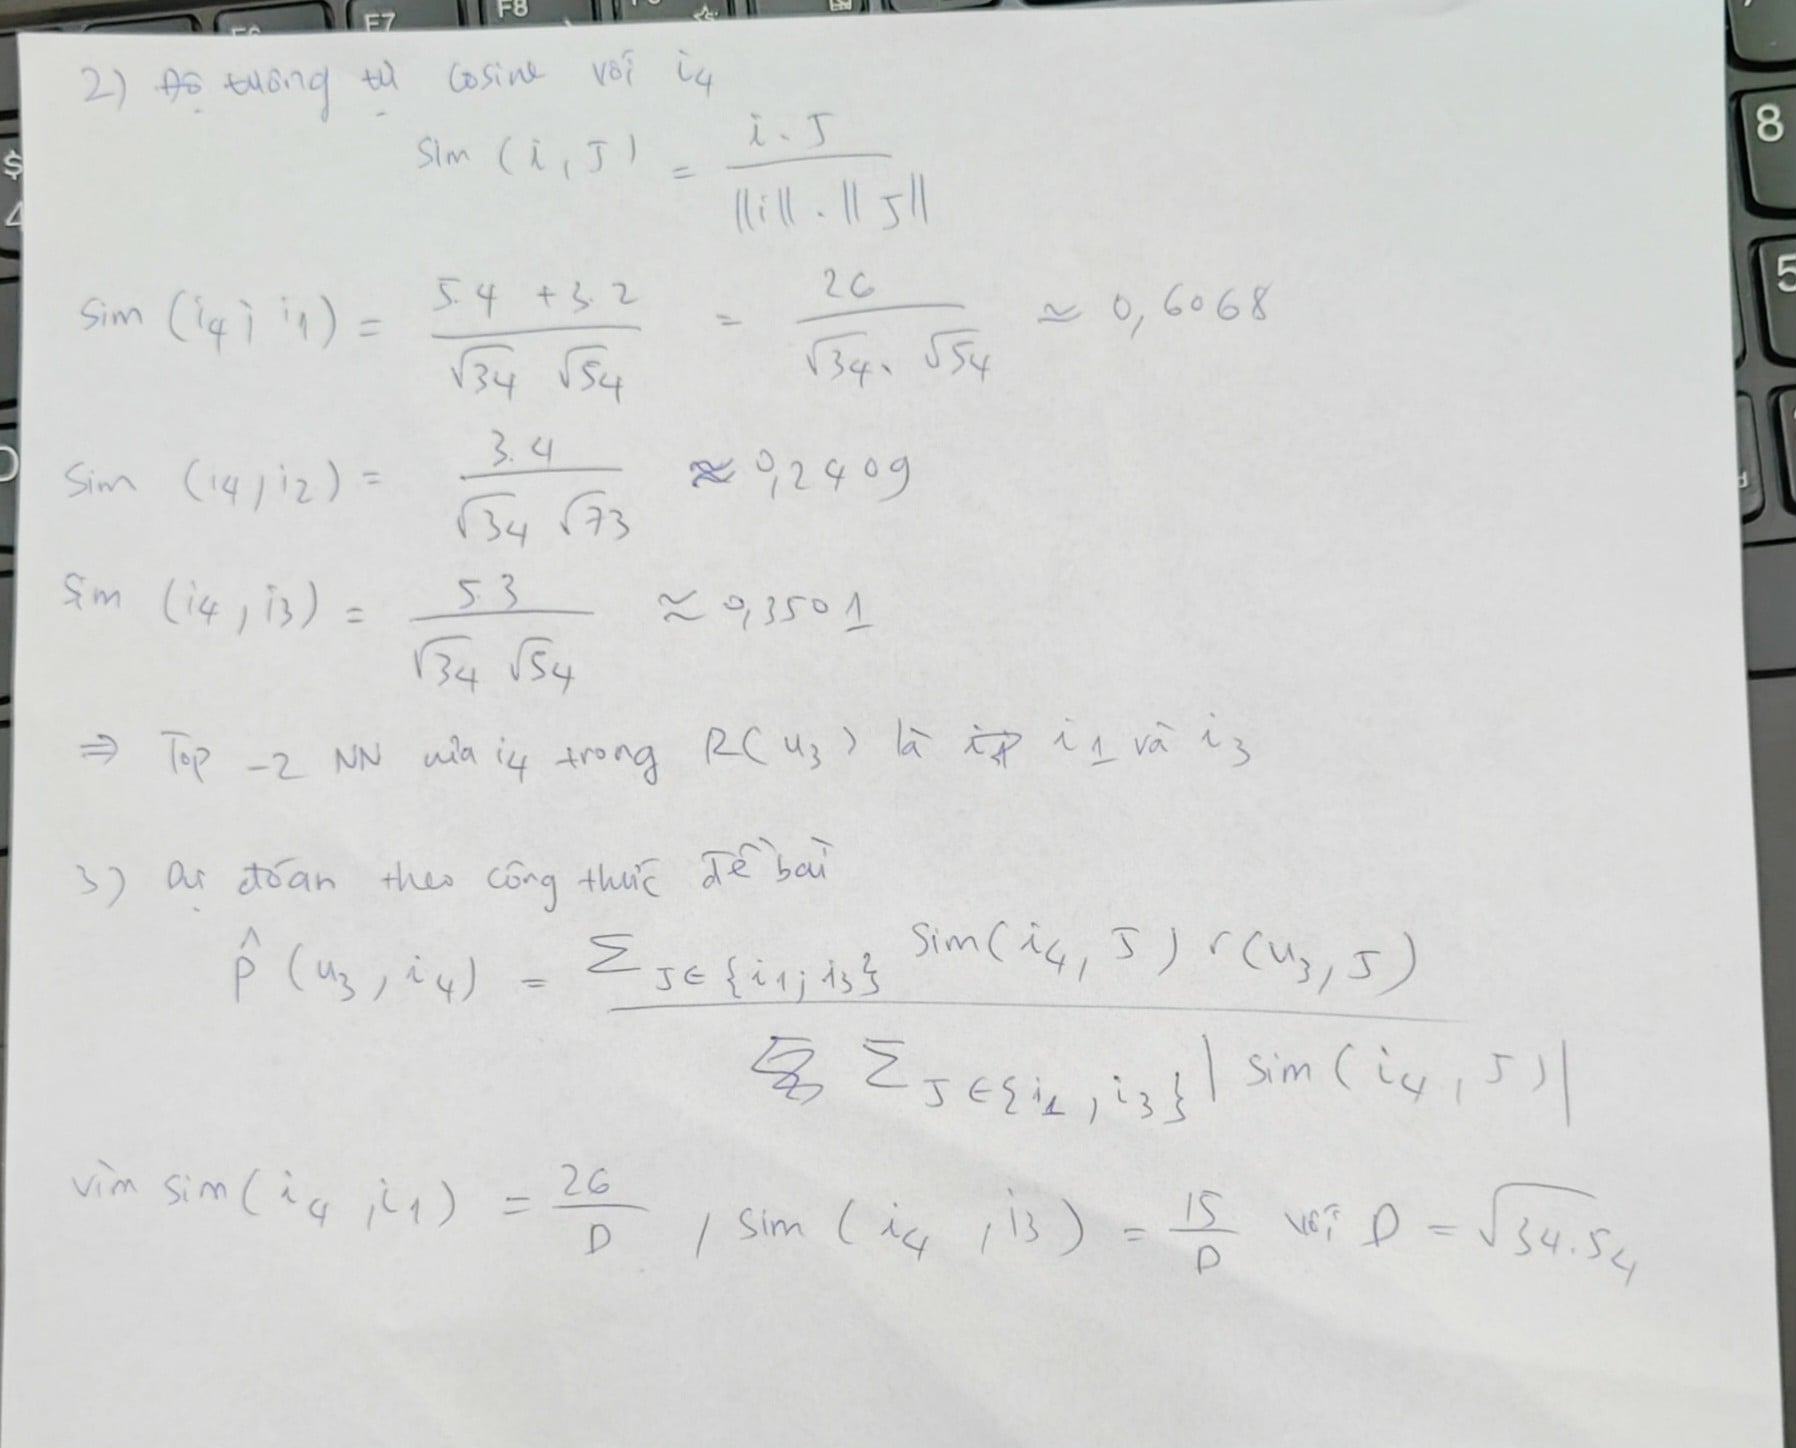 F7
F8
8
5
$
4
2) Độ tương tự Cosine với i4
Sim (i, J) = i . J / ||i|| . ||J||
Sim (i4; i1) = 5.4 + 3.2 / √34 √54 = 26 / √34 . √54 ≈ 0,6068
Sim (i4, i2) = 3.4 / √34 √73 ≈ 0,2409
Sim (i4, i3) = 5.3 / √34 √54 ≈ 0,3501
⇒ Top -2 NN của i4 trong R(u3) là i1 và i3
3) Dự đóan theo công thức đề bài
p̂ (u3, i4) = Σ J∈{i1; i3} Sim(i4, J) r(u3, J) / Σ J∈{i1, i3} | Sim(i4, J)|
vìm sim(i4, i1) = 26 / D , Sim (i4, i3) = 15 / D với D = √34.54